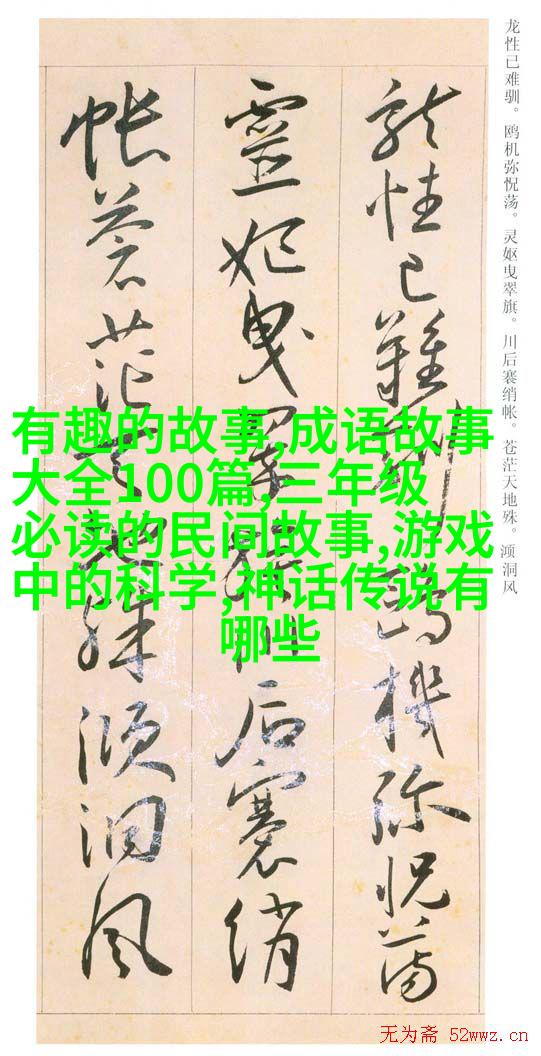 龙性已难驯。鸥机弥怳荡。灵妪曳翠旗。川后褰绡帐。苍茫天地殊。澒洞风
龍性已難馴鷗機弥怳蕩
靈妪曳翠旗川后褰綃
帳蒼茫天地殊澒洞風
有趣的故事,成语故事
大全100篇,三年级
必读的民间故事,游戏
中的科学,神话传说有
哪些
无为斋 52wwz.cn